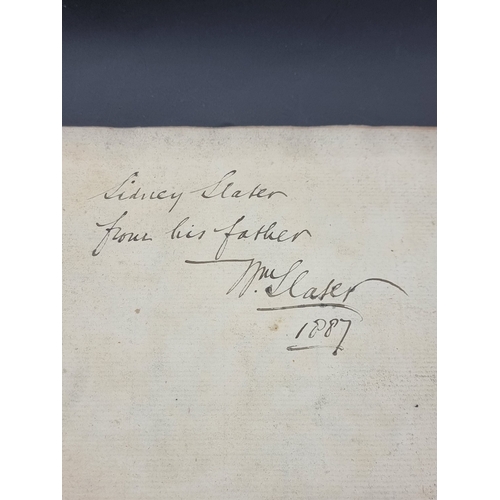 Sidney Slater
from his father
Wm. Slater
1887